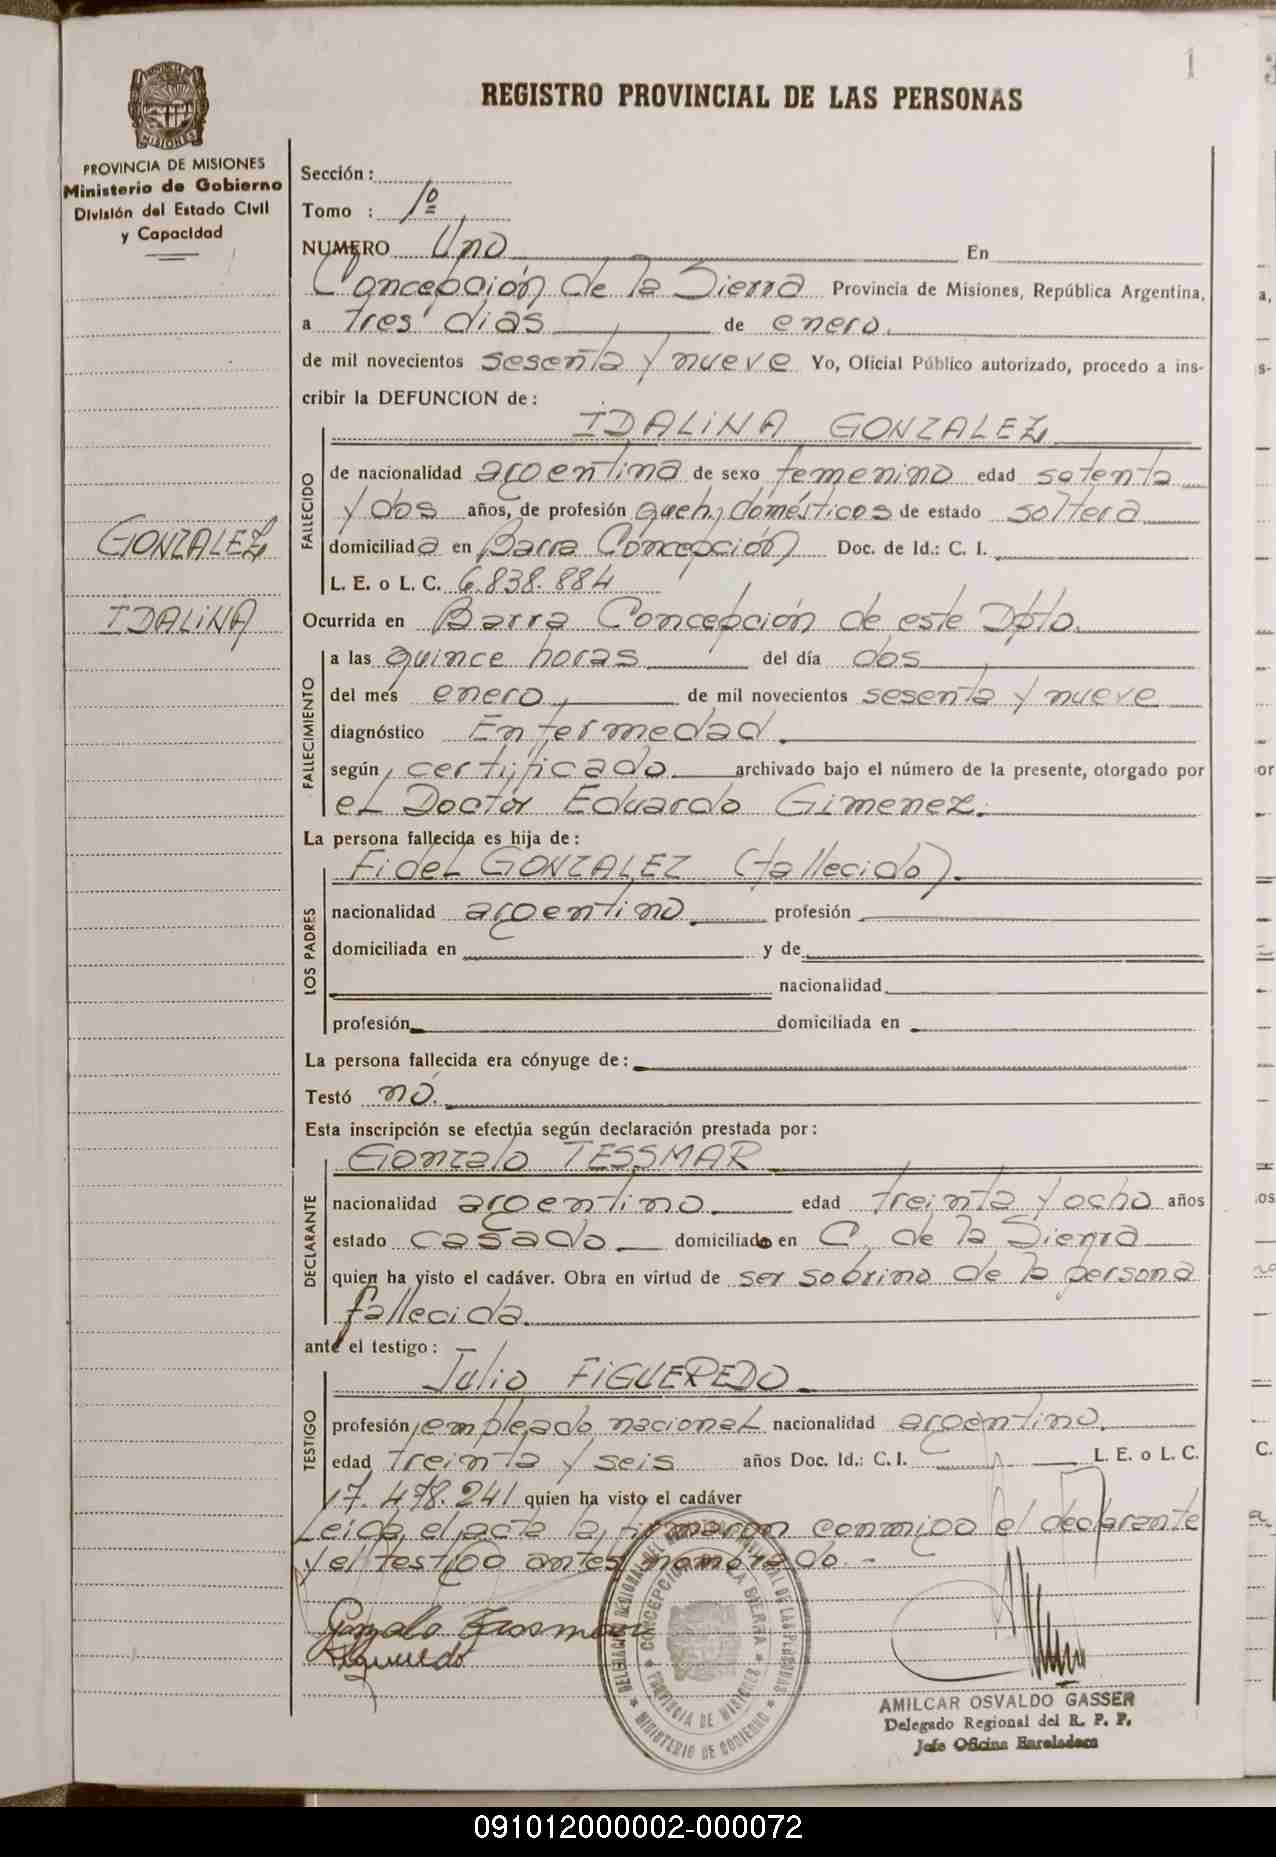 1
REGISTRO PROVINCIAL DE LAS PERSONAS
MISIONES
PROVINCIA DE MISIONES
Ministerio de Gobierno
División del Estado Civil
y Capacidad
GONZALEZ,
IDALINA
Sección :
Tomo : 1º
NUMERO Uno En
Concepción de la Sierra Provincia de Misiones, República Argentina,
a tres días de enero
de mil novecientos sesenta y nueve Yo, Oficial Público autorizado, procedo a ins-
cribir la DEFUNCION de :
IDALINA GONZALEZ,
FALLECIDO
de nacionalidad argentina de sexo femenino edad setenta
y dos años, de profesión queh. domésticos de estado soltera
domiciliada en Barra Concepción Doc. de Id.: C. I.
L. E. o L. C. 6.838.884
Ocurrida en Barra Concepción de este Dpto.
FALLECIMIENTO
a las quince horas del día dos
del mes enero, de mil novecientos sesenta y nueve
diagnóstico Enfermedad
según certificado archivado bajo el número de la presente, otorgado por
el Doctor Eduardo Gimenez.
La persona fallecida es hija de :
LOS PADRES
Fidel GONZALEZ (fallecido).
nacionalidad argentino profesión
domiciliada en y de
nacionalidad
profesión domiciliada en
La persona fallecida era cónyuge de :
Testó no.
Esta inscripción se efectúa según declaración prestada por :
DECLARANTE
Gonzalo TESSMAR
nacionalidad argentino edad treinta y ocho años
estado casado domiciliado en C. de la Sierra
quien ha visto el cadáver. Obra en virtud de ser sobrino de la persona
fallecida.
ante el testigo :
TESTIGO
Julio FIGUEREDO
profesión empleado nacional nacionalidad argentino.
edad treinta y seis años Doc. Id.: C. I. L. E. o L. C.
17.478.241 quien ha visto el cadáver
Leida el acta la firmaron conmigo el declarante
y el testigo antes nombrado.-
Gonzalo Tessmar
Figueredo
DELEGACION REGIONAL DEL REGISTRO PROVINCIAL DE LAS PERSONAS
CONCEPCION DE LA SIERRA
PROVINCIA DE MISIONES
MINISTERIO DE GOBIERNO
AMILCAR OSVALDO GASSER
Delegado Regional del R. P. P.
Jefe Oficina
091012000002-000072